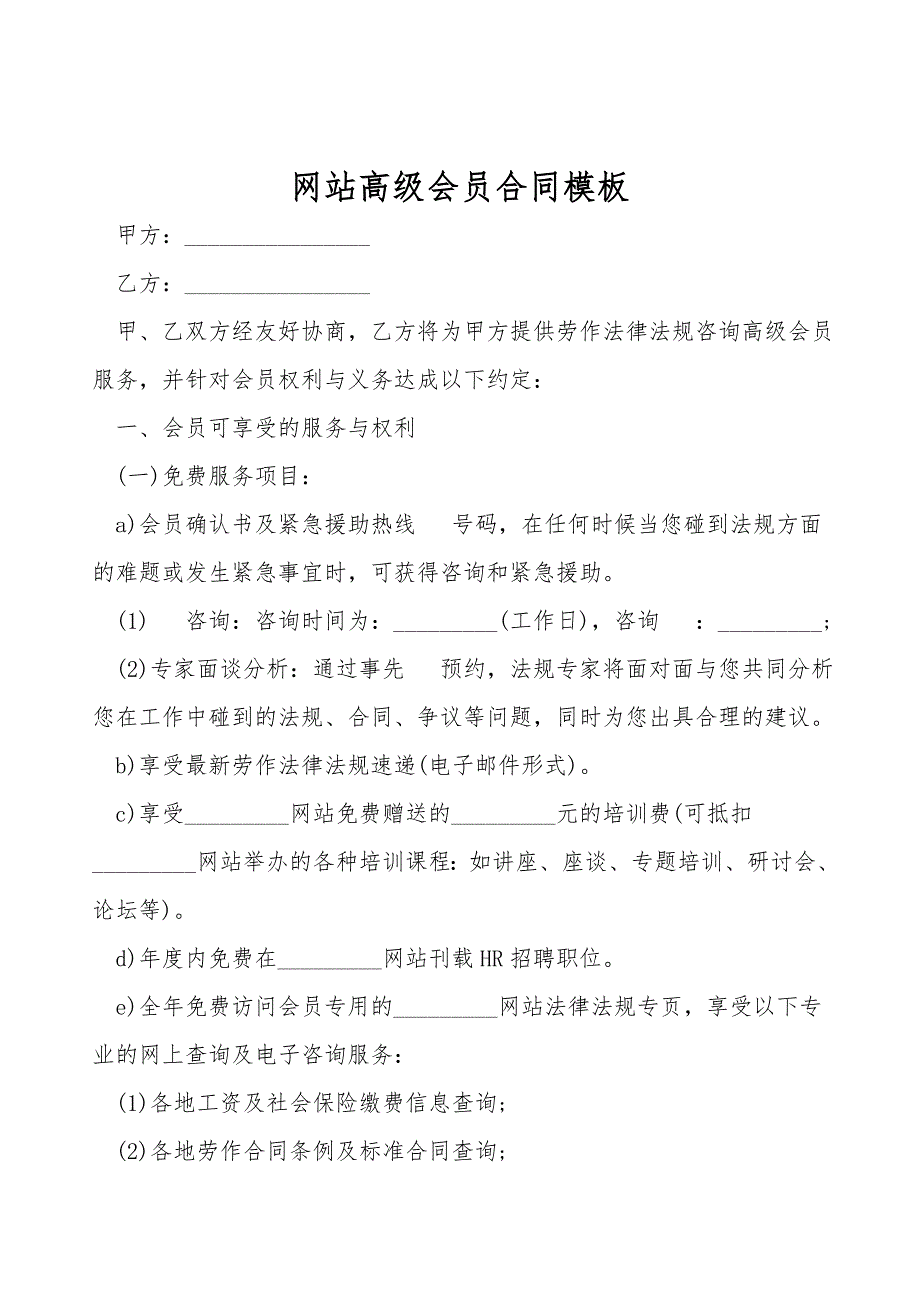 网站高级会员合同模板
甲方：________________
乙方：________________
甲、乙双方经友好协商，乙方将为甲方提供劳作法律法规咨询高级会员
服务，并针对会员权利与义务达成以下约定：
一、会员可享受的服务与权利
(一)免费服务项目：
a)会员确认书及紧急援助热线　号码，在任何时候当您碰到法规方面
的难题或发生紧急事宜时，可获得咨询和紧急援助。
(1)　咨询：咨询时间为：_________(工作日)，咨询　：_________;
(2)专家面谈分析：通过事先　预约，法规专家将面对面与您共同分析
您在工作中碰到的法规、合同、争议等问题，同时为您出具合理的建议。
b)享受最新劳作法律法规速递(电子邮件形式)。
c)享受_________网站免费赠送的_________元的培训费(可抵扣
_________网站举办的各种培训课程：如讲座、座谈、专题培训、研讨会、
论坛等)。
d)年度内免费在_________网站刊载HR招聘职位。
e)全年免费访问会员专用的_________网站法律法规专页，享受以下专
业的网上查询及电子咨询服务：
(1)各地工资及社会保险缴费信息查询;
(2)各地劳作合同条例及标准合同查询;